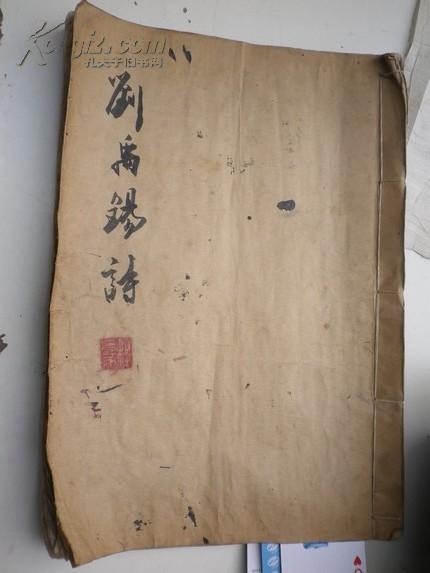 Kongfz.com
孔夫子旧书网
劉禹錫詩